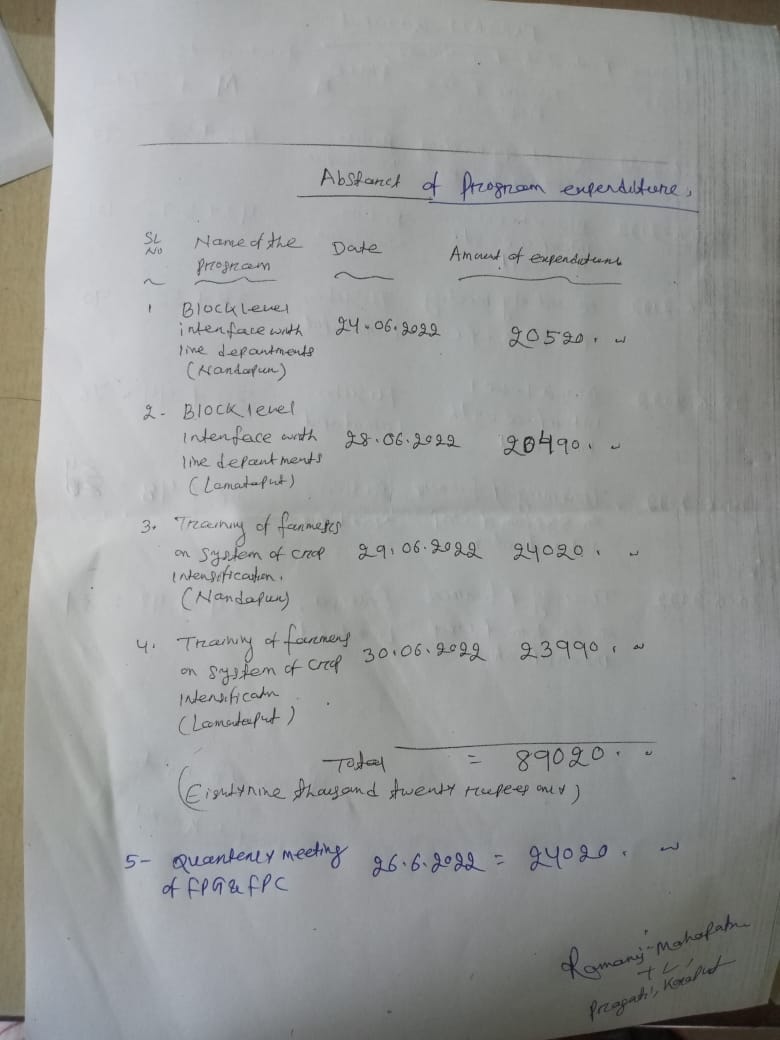 Abstract of Program expenditure,
SL NO Name of the Program Date Amount of expenditure
1 Block Level interface with line departments (Nandapur) 24.06.2022 20520.
2- Block level interface with line departments (Lamataput) 28.06.2022 20490.
3. Training of farmers on system of crop intensification. (Nandapur) 29.06.2022 24020.
4. Training of farmers on system of crop intensificatn (Lamataput) 30.06.2022 23990.
Total = 89020.
(Eighty nine thousand twenty rupees only)
5- Quarterly meeting of FPG & FPC 26.6.2022 = 24020.
Ramani Mahapatra
TL,
Pragati, Koraput